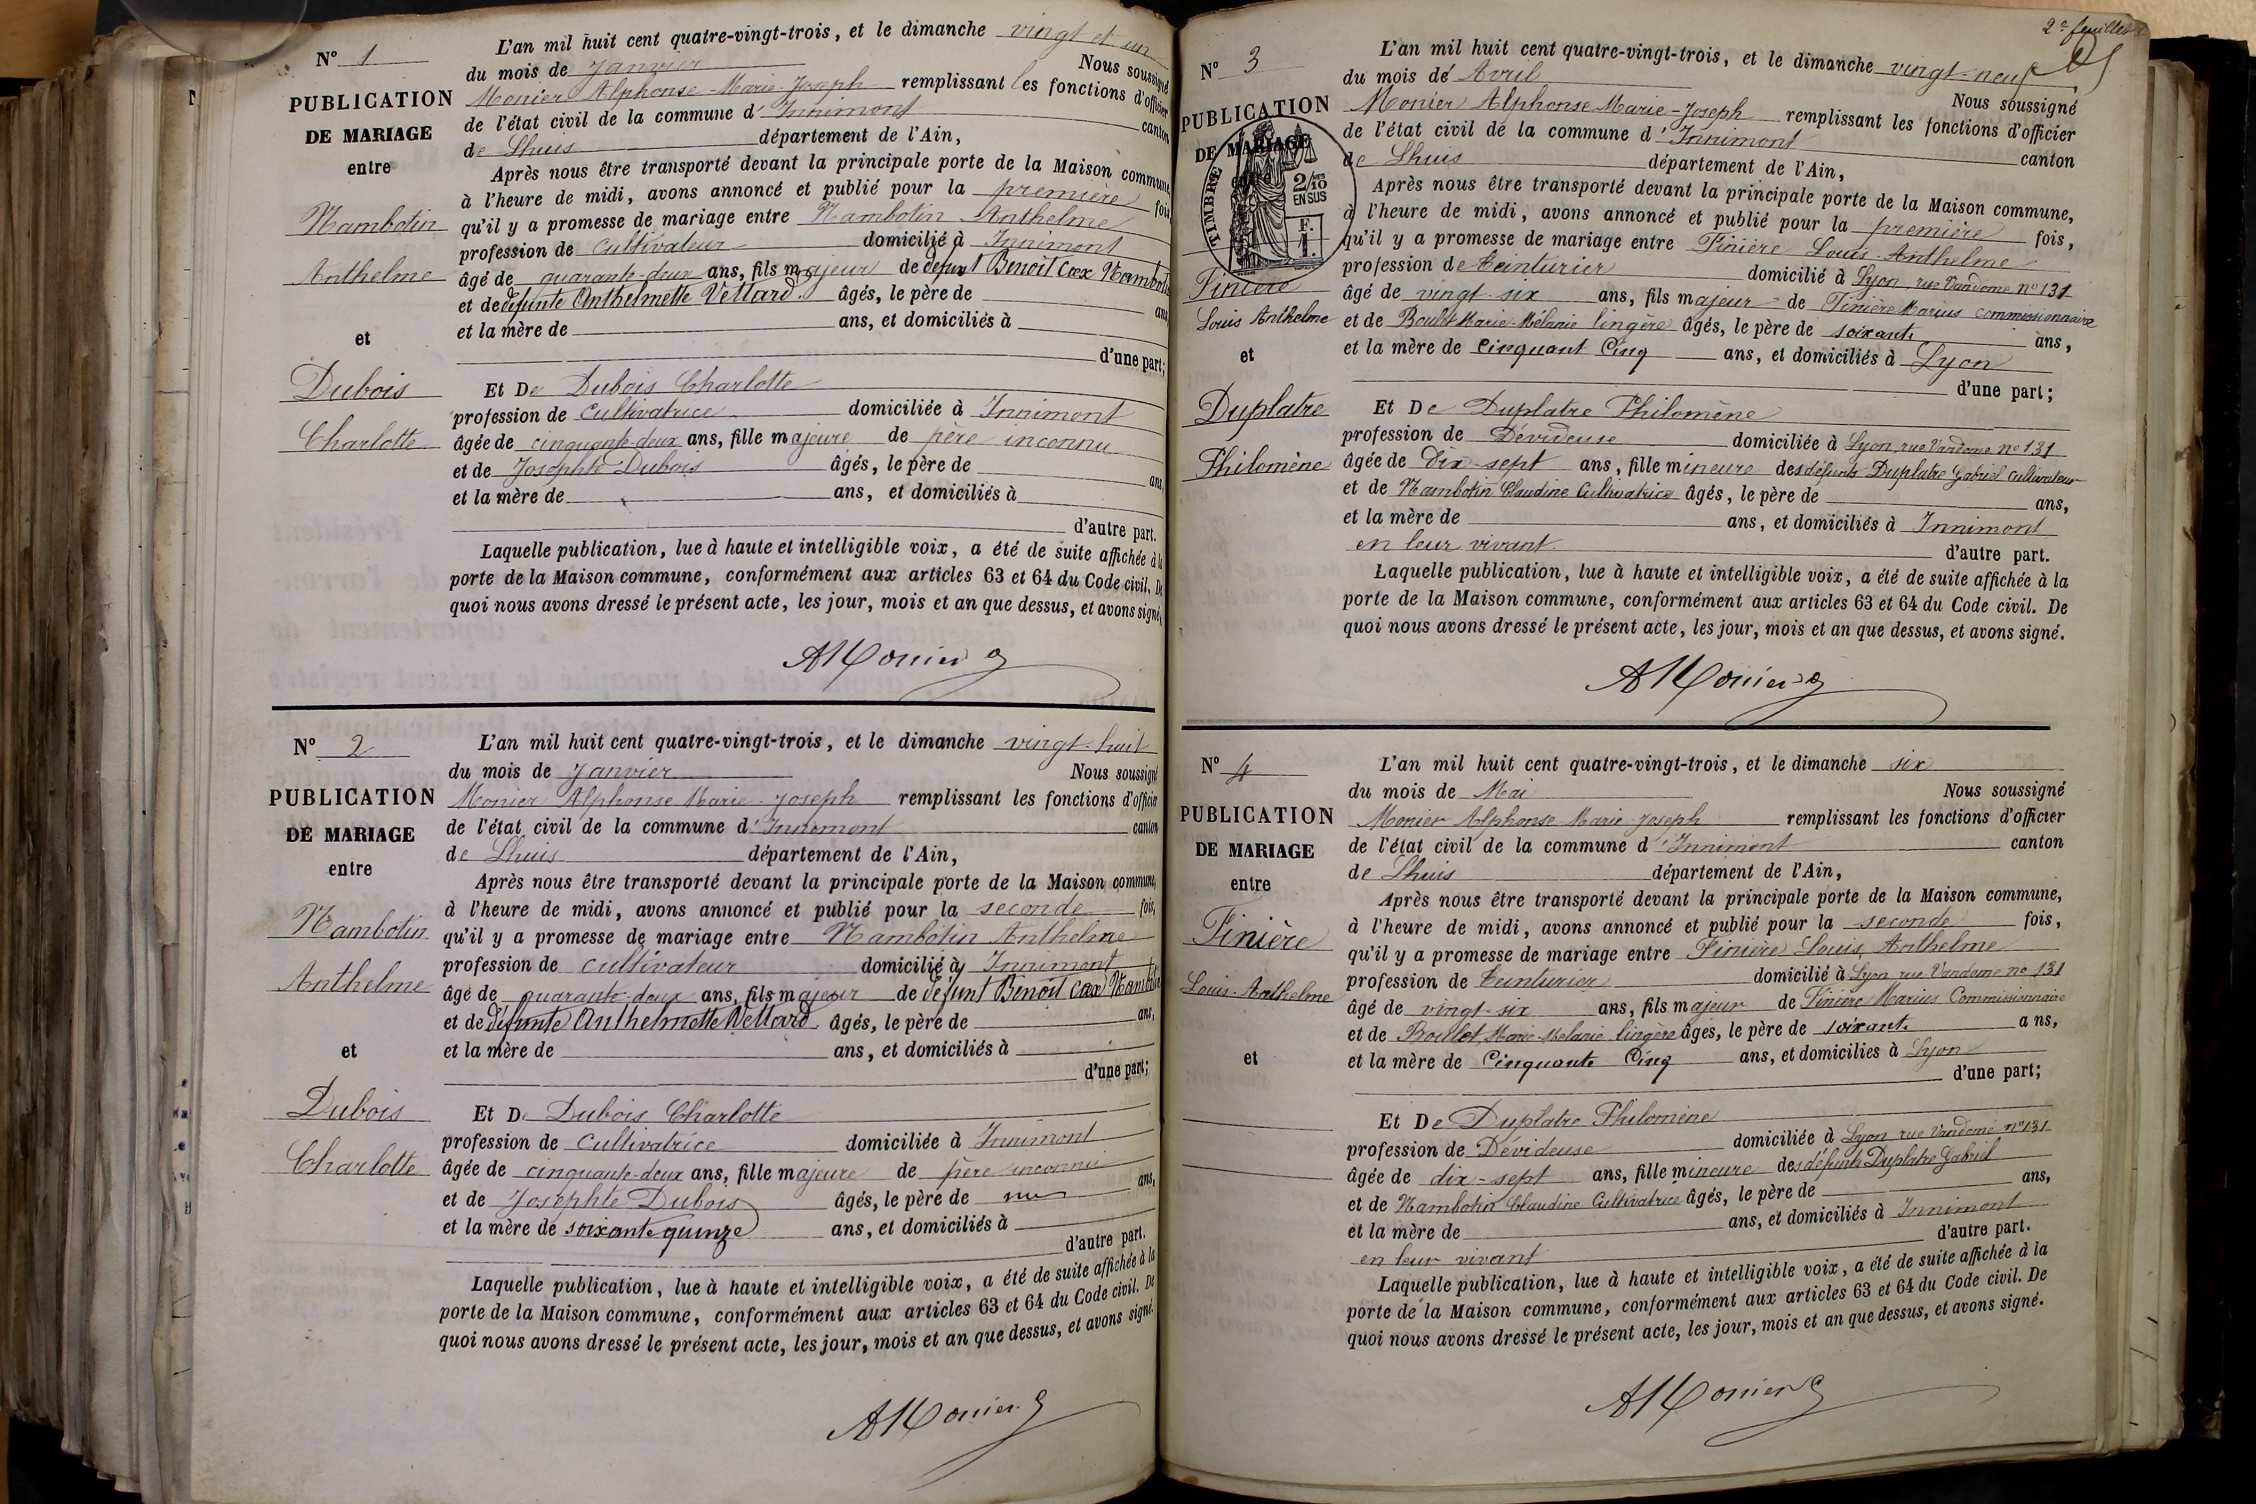 N° 1
PUBLICATION
DE MARIAGE
entre
Mambotin
Anthelme
et
Dubois
Charlotte
L'an mil huit cent quatre-vingt-trois, et le dimanche vingt et un
du mois de Janvier Nous soussigné
Monier Alphonse-Marie-Joseph remplissant les fonctions d'officier
de l'état civil de la commune d'Innimont canton
de Lhuis département de l'Ain,
Après nous être transporté devant la principale porte de la Maison commune,
à l'heure de midi, avons annoncé et publié pour la première fois
qu'il y a promesse de mariage entre Mambotin Anthelme
profession de cultivateur domicilié à Innimont
âgé de quarante-deux ans, fils majeur de défunt Benoît Cax Mambotin
et de défunte Anthelmette Vettard âgés, le père de ans,
et la mère de ans, et domiciliés à
d'une part;
Et De Dubois Charlotte
profession de Cultivatrice domiciliée à Innimont
âgée de cinquante-deux ans, fille majeure de père inconnu
et de Josephte Dubois âgés, le père de ans,
et la mère de ans, et domiciliés à
d'autre part.
Laquelle publication, lue à haute et intelligible voix, a été de suite affichée à la
porte de la Maison commune, conformément aux articles 63 et 64 du Code civil. De
quoi nous avons dressé le présent acte, les jour, mois et an que dessus, et avons signé.
AMonier
N° 2
PUBLICATION
DE MARIAGE
entre
Mambotin
Anthelme
et
Dubois
Charlotte
L'an mil huit cent quatre-vingt-trois, et le dimanche vingt-huit
du mois de Janvier Nous soussigné
Monier Alphonse Marie-Joseph remplissant les fonctions d'officier
de l'état civil de la commune d'Innimont canton
de Lhuis département de l'Ain,
Après nous être transporté devant la principale porte de la Maison commune,
à l'heure de midi, avons annoncé et publié pour la seconde fois,
qu'il y a promesse de mariage entre Mambotin Anthelme
profession de cultivateur domicilié à Innimont
âgé de quarante-deux ans, fils majeur de défunt Benoît Cax Mambotin
et de défunte Anthelmette Vettard âgés, le père de ans,
et la mère de ans, et domiciliés à
d'une part;
Et De Dubois Charlotte
profession de Cultivatrice domiciliée à Innimont
âgée de cinquante-deux ans, fille majeure de père inconnu
et de Josephte Dubois âgés, le père de ans,
et la mère de soixante quinze ans, et domiciliés à
d'autre part.
Laquelle publication, lue à haute et intelligible voix, a été de suite affichée à la
porte de la Maison commune, conformément aux articles 63 et 64 du Code civil. De
quoi nous avons dressé le présent acte, les jour, mois et an que dessus, et avons signé.
AMonier
2e feuillet
N° 3
PUBLICATION
DE MARIAGE
entre
TIMBRE
2/10
EN SUS
F.
1.
Finière
Louis Anthelme
et
Duplatre
Philomène
L'an mil huit cent quatre-vingt-trois, et le dimanche vingt-neuf
du mois de Avril Nous soussigné
Monier Alphonse Marie-Joseph remplissant les fonctions d'officier
de l'état civil de la commune d'Innimont canton
de Lhuis département de l'Ain,
Après nous être transporté devant la principale porte de la Maison commune,
à l'heure de midi, avons annoncé et publié pour la première fois,
qu'il y a promesse de mariage entre Finière Louis-Anthelme
profession de teinturier domicilié à Lyon rue Vandome n° 131
âgé de vingt-six ans, fils majeur de Finière Marius commissionnaire
et de Boulet Marie-Mélanie lingère âgés, le père de soixante ans,
et la mère de Cinquant Cinq ans, et domiciliés à Lyon
d'une part;
Et De Duplatre Philomène
profession de Dévideuse domiciliée à Lyon rue Vandome n° 131
âgée de Dix-sept ans, fille mineure des défunts Duplatre Gabriel cultivateur
et de Mambotin Claudine Cultivatrice âgés, le père de ans,
et la mère de ans, et domiciliés à Innimont
en leur vivant d'autre part.
Laquelle publication, lue à haute et intelligible voix, a été de suite affichée à la
porte de la Maison commune, conformément aux articles 63 et 64 du Code civil. De
quoi nous avons dressé le présent acte, les jour, mois et an que dessus, et avons signé.
AMonier
N° 4
PUBLICATION
DE MARIAGE
entre
Finière
Louis-Anthelme
et
L'an mil huit cent quatre-vingt-trois, et le dimanche six
du mois de Mai Nous soussigné
Monier Alphonse Marie-Joseph remplissant les fonctions d'officier
de l'état civil de la commune d'Innimont canton
de Lhuis département de l'Ain,
Après nous être transporté devant la principale porte de la Maison commune,
à l'heure de midi, avons annoncé et publié pour la seconde fois,
qu'il y a promesse de mariage entre Finière Louis, Anthelme
profession de teinturier domicilié à Lyon rue Vandome n° 131
âgé de vingt-six ans, fils majeur de Finière Marius Commissionnaire
et de Boulet, Marie-Mélanie lingère âgés, le père de soixante ans,
et la mère de Cinquante Cinq ans, et domiciliés à Lyon
d'une part;
Et De Duplatre Philomène
profession de Dévideuse domiciliée à Lyon rue Vandome n° 131
âgée de dix-sept ans, fille mineure des défunts Duplatre Gabriel
et de Mambotin Claudine Cultivatrice âgés, le père de ans,
et la mère de ans, et domiciliés à Innimont
en leur vivant d'autre part.
Laquelle publication, lue à haute et intelligible voix, a été de suite affichée à la
porte de la Maison commune, conformément aux articles 63 et 64 du Code civil. De
quoi nous avons dressé le présent acte, les jour, mois et an que dessus, et avons signé.
AMonier